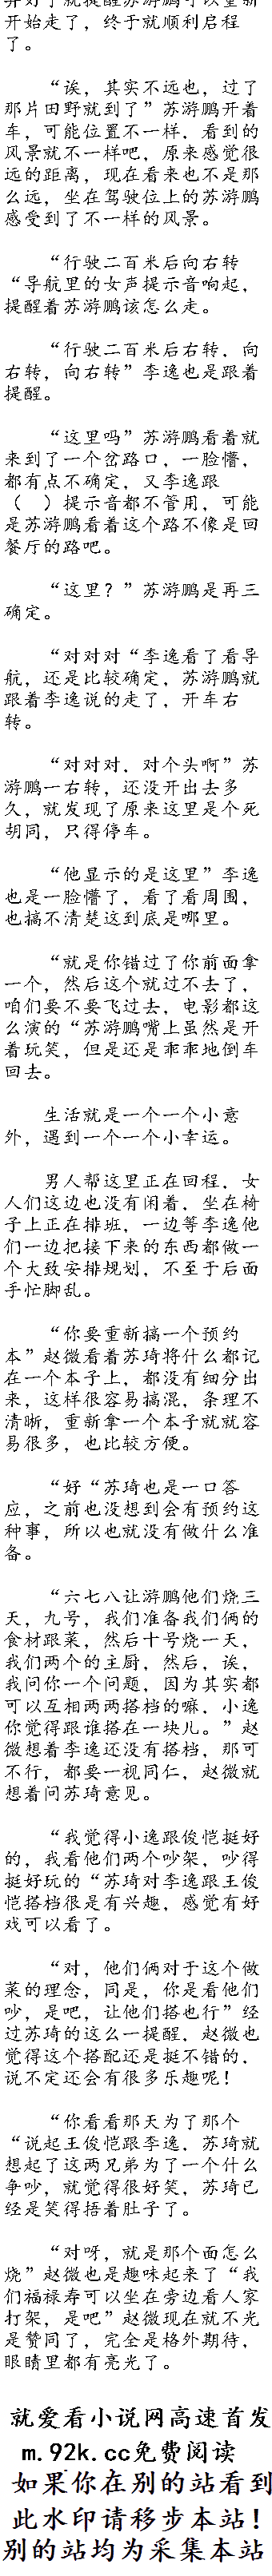 弄好了就提醒苏游鹏可以重新
开始走了，终于就顺利启程
了。
“诶，其实不远也，过了
那片田野就到了”苏游鹏开着
车，可能位置不一样，看到的
风景就不一样吧，原来感觉很
远的距离，现在看来也不是那
么远，坐在驾驶位上的苏游鹏
感受到了不一样的风景。
“行驶二百米后向右转
“导航里的女声提示音响起，
提醒着苏游鹏该怎么走。
“行驶二百米后右转，向
右转，向右转”李逸也是跟着
提醒。
“这里吗”苏游鹏看着就
来到了一个岔路口，一脸懵，
都有点不确定，又李逸跟
（　）提示音都不管用，可能
是苏游鹏看着这个路不像是回
餐厅的路吧。
“这里？”苏游鹏是再三
确定。
“对对对“李逸看了看导
航，还是比较确定，苏游鹏就
跟着李逸说的走了，开车右
转。
“对对对，对个头啊”苏
游鹏一右转，还没开出去多
久，就发现了原来这里是个死
胡同，只得停车。
“他显示的是这里”李逸
也是一脸懵了，看了看周围，
也搞不清楚这到底是哪里。
“就是你错过了你前面拿
一个，然后这个就过不去了，
咱们要不要飞过去，电影都这
么演的“苏游鹏嘴上虽然是开
着玩笑，但是还是乖乖地倒车
回去。
生活就是一个一个小意
外，遇到一个一个小幸运。
男人帮这里正在回程，女
人们这边也没有闲着，坐在椅
子上正在排班，一边等李逸他
们一边把接下来的东西都做一
个大致安排规划，不至于后面
手忙脚乱。
“你要重新搞一个预约
本”赵微看着苏琦将什么都记
在一个本子上，都没有细分出
来，这样很容易搞混，条理不
清晰，重新拿一个本子就就容
易很多，也比较方便。
“好“苏琦也是一口答
应，之前也没想到会有预约这
种事，所以也就没有做什么准
备。
“六七八让游鹏他们烧三
天，九号，我们准备我们俩的
食材跟菜，然后十号烧一天，
我们两个的主厨，然后，诶，
我问你一个问题，因为其实都
可以互相两两搭档的嘛，小逸
你觉得跟谁搭在一块儿。”赵
微想着李逸还没有搭档，那可
不行，都要一视同仁，赵微就
想着问苏琦意见。
“我觉得小逸跟俊恺挺好
的，我看他们两个吵架，吵得
挺好玩的“苏琦对李逸跟王俊
恺搭档很是有兴趣，感觉有好
戏可以看了。
“对，他们俩对于这个做
菜的理念，同是，你是看他们
吵，是吧，让他们搭也行”经
过苏琦的这么一提醒，赵微也
觉得这个搭配还是挺不错的，
说不定还会有很多乐趣呢！
“你看看那天为了那个
“说起王俊恺跟李逸，苏琦就
想起了这两兄弟为了一个什么
争吵，就觉得很好笑，苏琦已
经是笑得捂着肚子了。
“对呀，就是那个面怎么
烧”赵微也是趣味起来了“我
们福禄寿可以坐在旁边看人家
打架，是吧”赵微现在就不光
是赞同了，完全是格外期待，
眼睛里都有亮光了。
就爱看小说网高速首发
m.92k.cc免费阅读
如果你在别的站看到
此水印请移步本站！
别的站均为采集本站